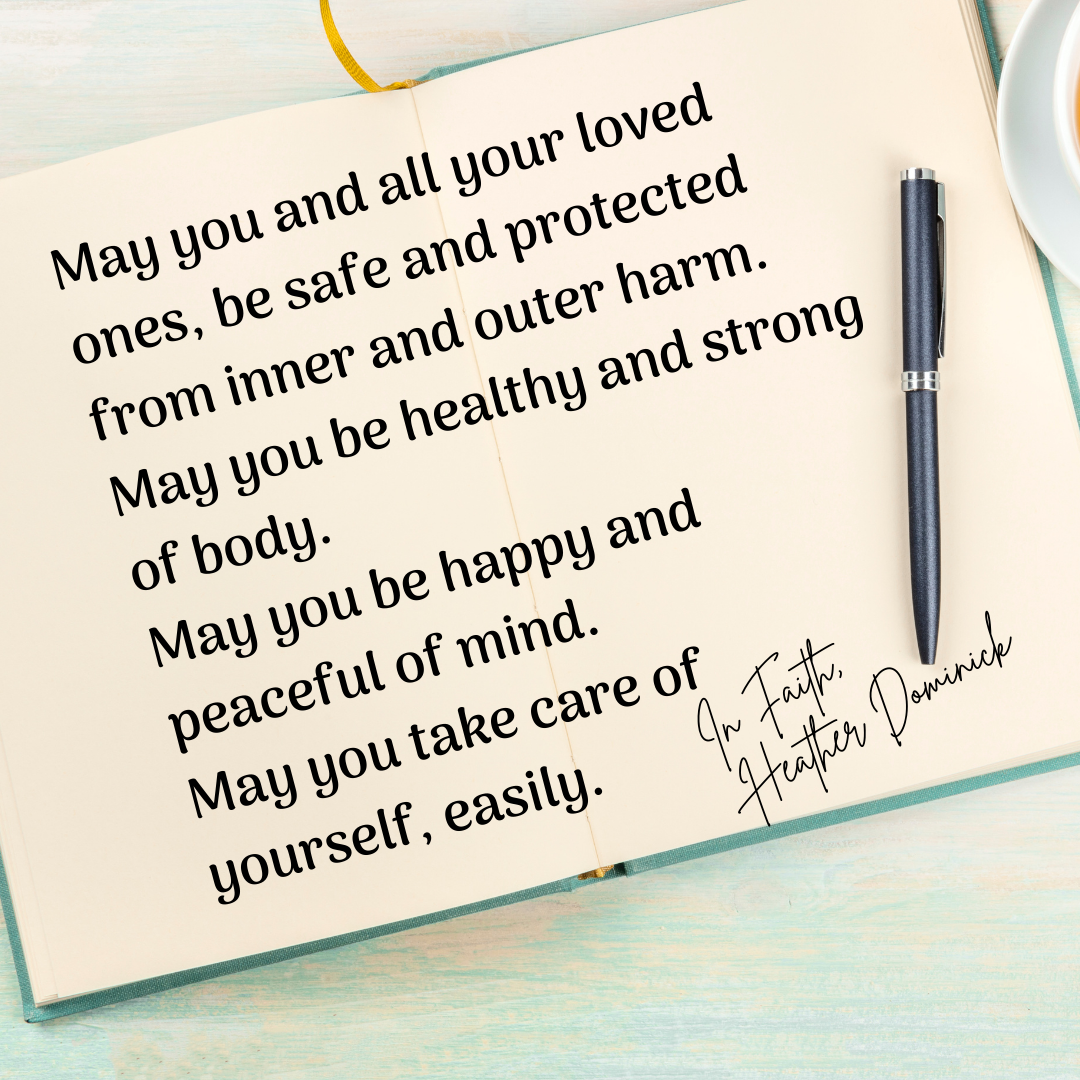 May you and all your loved
ones, be safe and protected
from inner and outer harm.
May you be healthy and strong
of body.
May you be happy and
peaceful of mind.
May you take care of
yourself, easily.
In Faith,
Heather Dominick